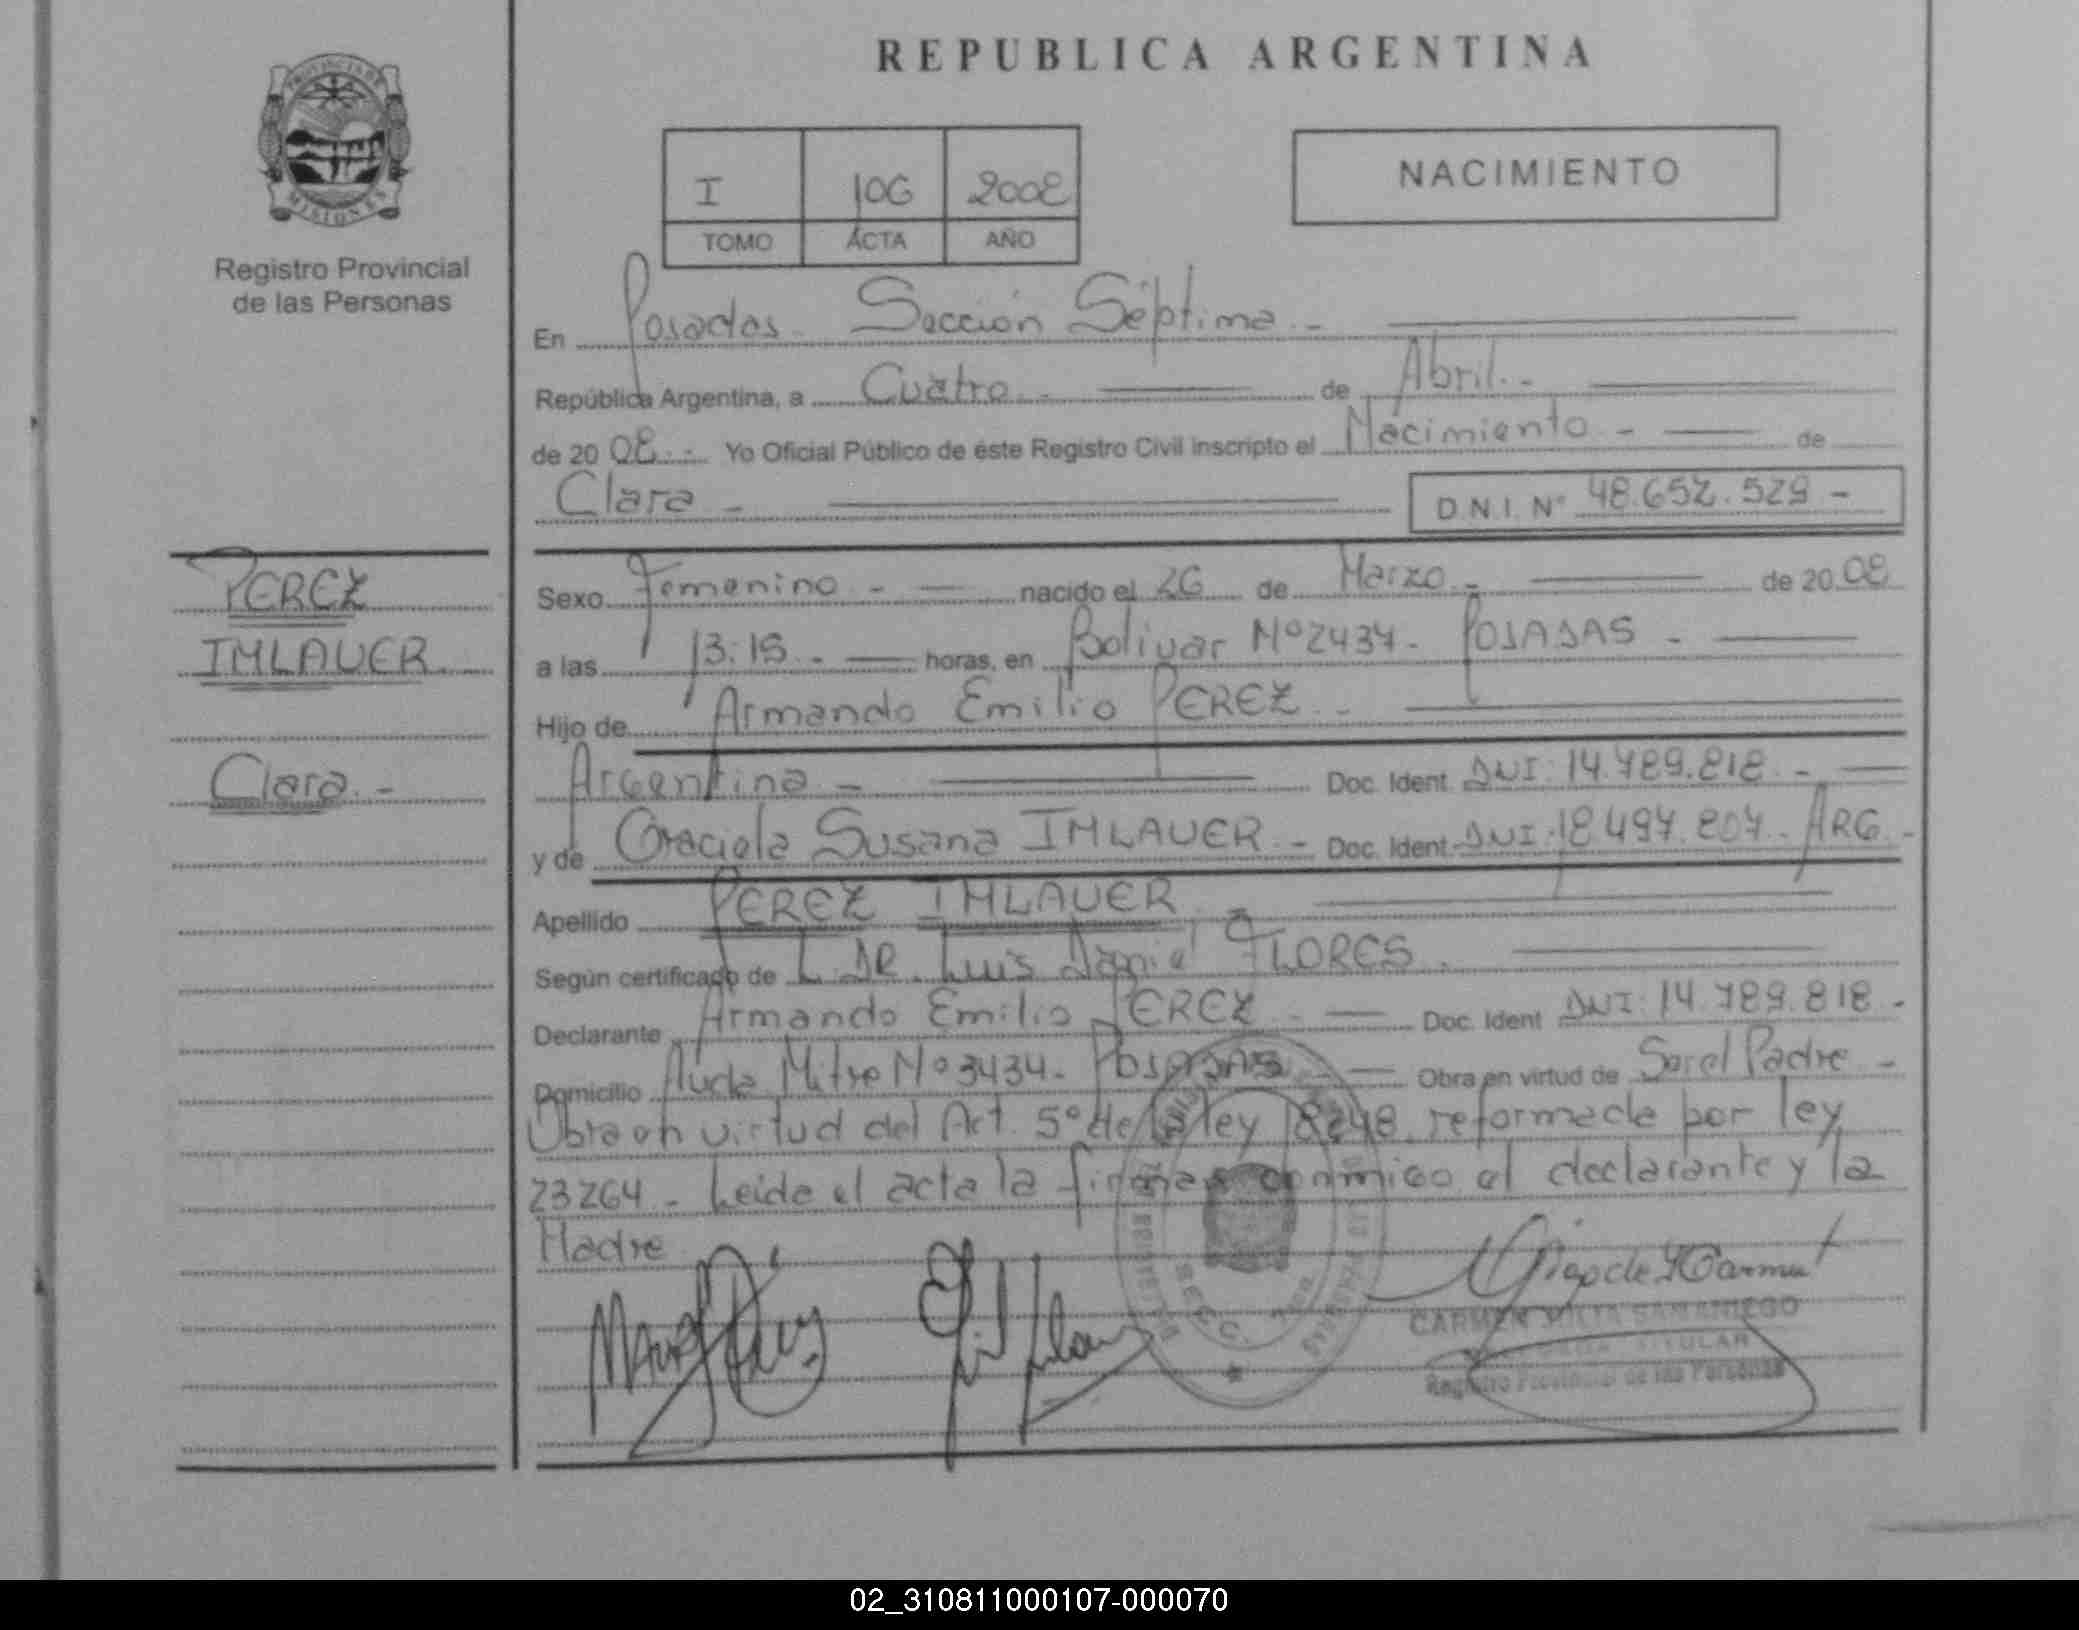 REPUBLICA ARGENTINA
PROVINCIA DE
MISIONES
Registro Provincial
de las Personas
I 106 2008
TOMO ACTA AÑO
NACIMIENTO
En Posadas - Sección Séptima -
República Argentina, a Cuatro - de Abril -
de 2008 - Yo Oficial Público de éste Registro Civil inscripto el Nacimiento - de
Clara - D.N.I. Nº 48.652.529 -
PEREZ
IMLAUER
Clara -
Sexo Femenino - nacido el 26 de Marzo - de 2008
a las 13:15 - horas, en Bolivar Nº 2437 - POSADAS -
Hijo de Armando Emilio PEREZ -
Argentina - Doc. Ident. DNI: 14.789.818 -
y de Graciela Susana IMLAUER - Doc. Ident. DNI: 18.497.807 - ARG. -
Apellido PEREZ IMLAUER -
Según certificado de L. DR. Luis Daniel FLORES.
Declarante Armando Emilio PEREZ - Doc. Ident DNI: 14.789.818 -
Domicilio Avda Mitre Nº 3434 - POSADAS - Obra en virtud de Ser el Padre -
Obra en virtud del Art. 5º de la ley 18248 reformada por ley
23264 - Leida el acta la firman conmigo el declarante y la
Madre
CARMEN SAMANIEGO
TITULAR
Registro Provincial de las Personas
02_310811000107-000070